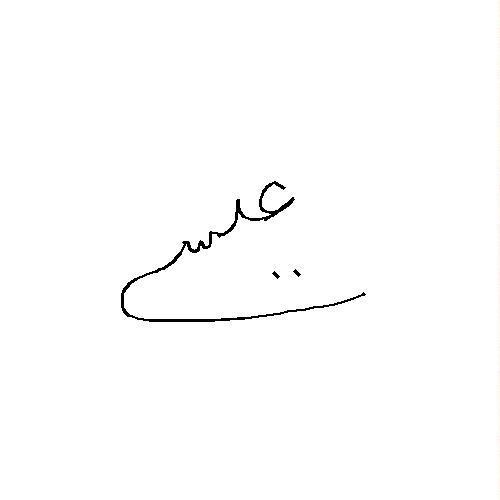 عيسى